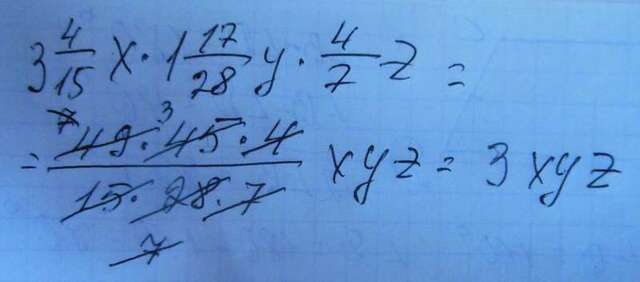 3 4/15 x · 1 17/28 y · 4/7 z =
= 49 · 45 · 4 / 15 · 28 · 7 xyz = 3xyz
7 3
7